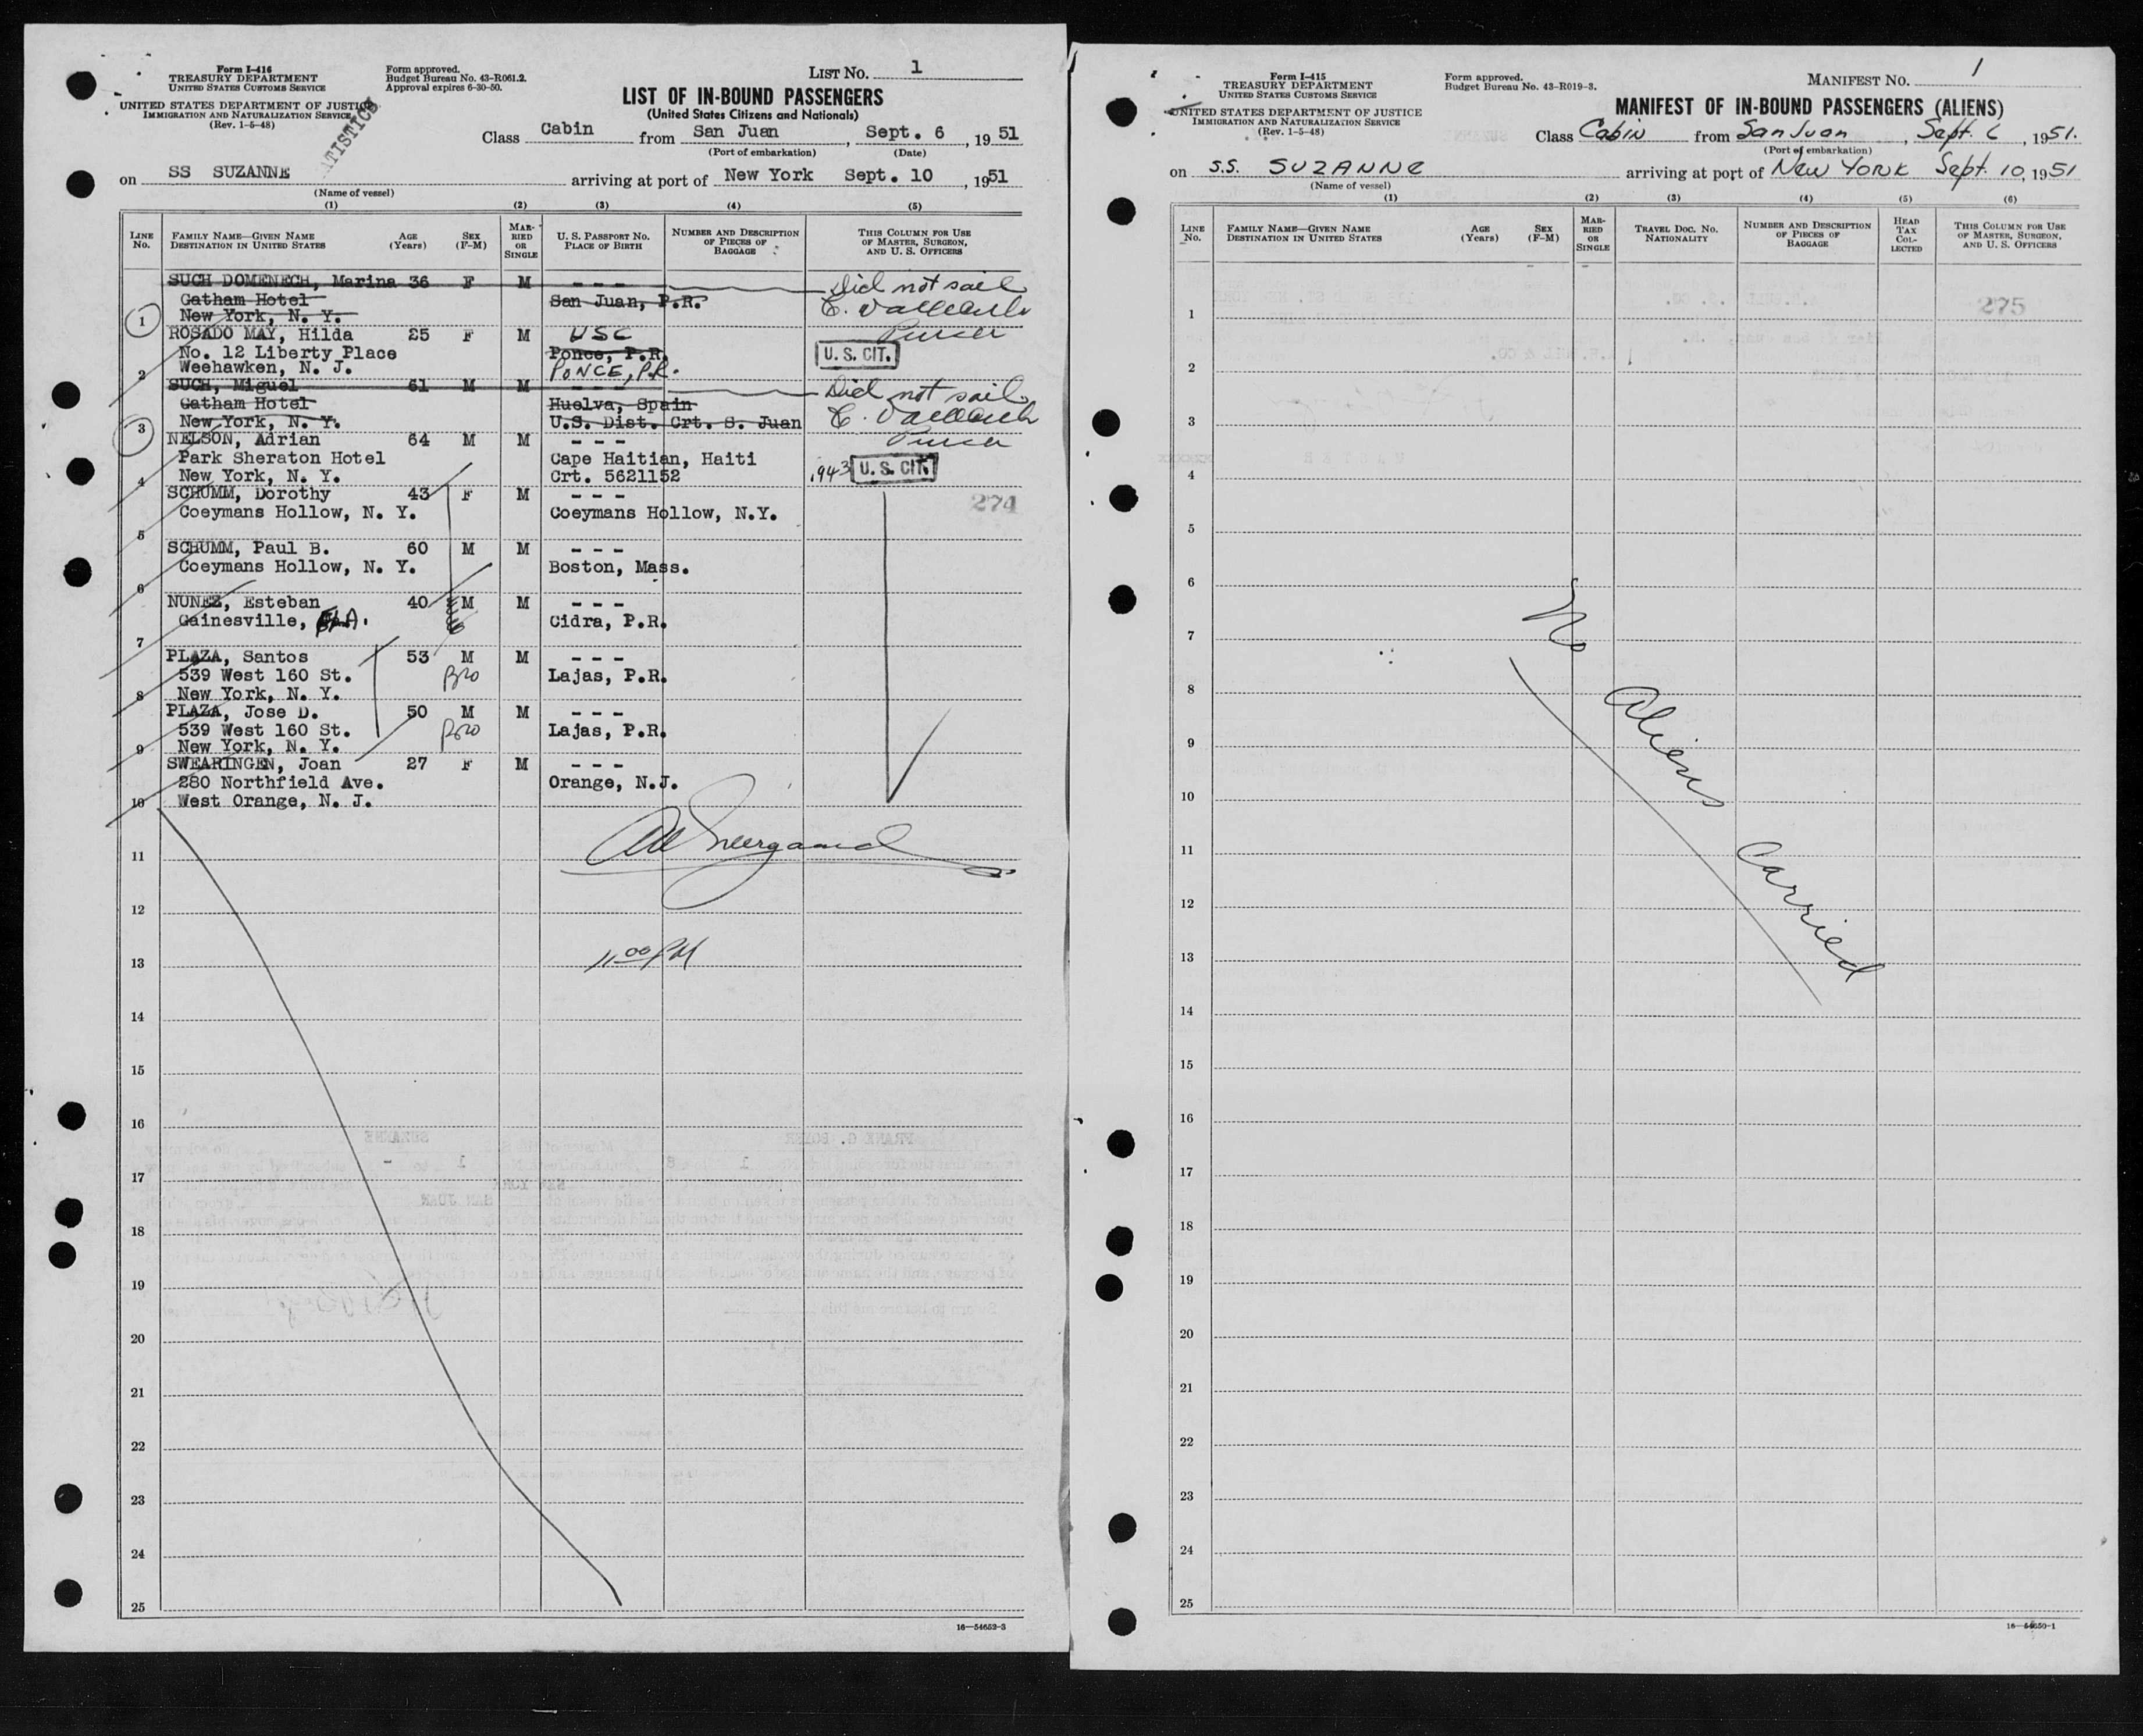 Form I-416
TREASURY DEPARTMENT
UNITED STATES CUSTOMS SERVICE
UNITED STATES DEPARTMENT OF JUSTICE
IMMIGRATION AND NATURALIZATION SERVICE
(Rev. 1-5-48)
Form approved.
Budget Bureau No. 43-R061.2.
Approval expires 6-30-50.
LIST NO. 1
LIST OF IN-BOUND PASSENGERS
(United States Citizens and Nationals)
Class Cabin from San Juan, Sept. 6, 1951
(Port of embarkation) (Date)
on SS SUZANNE arriving at port of New York Sept. 10, 1951
(Name of vessel)
(1) (2) (3) (4) (5)
LINE No. FAMILY NAME—GIVEN NAME DESTINATION IN UNITED STATES AGE (Years) SEX (F-M) MARRIED OR SINGLE U. S. PASSPORT NO. PLACE OF BIRTH NUMBER AND DESCRIPTION OF PIECES OF BAGGAGE THIS COLUMN FOR USE OF MASTER, SURGEON, AND U. S. OFFICERS
SUCH DOMENECH, Marina 36 F M - - - Did not sail
Gatham Hotel San Juan, P.R.
1 New York, N. Y.
ROSADO MAY, Hilda 25 F M USC Purser
No. 12 Liberty Place Ponce, P.R. U. S. CIT.
2 Weehawken, N. J. PONCE, P.R.
SUCH, Miguel 61 M M - - - Did not sail
Gatham Hotel Huelva, Spain
3 New York, N. Y. U.S. Dist. Crt. S. Juan
NELSON, Adrian 64 M M - - - Purser
Park Sheraton Hotel Cape Haitian, Haiti
4 New York, N. Y. Crt. 5621152 1943 U. S. CIT.
SCHUMM, Dorothy 43 F M - - - 274
Coeymans Hollow, N. Y. Coeymans Hollow, N.Y.
5
SCHUMM, Paul B. 60 M M - - -
Coeymans Hollow, N. Y. Boston, Mass.
6
NUNEZ, Esteban 40 M M - - -
Gainesville, FLA. Cidra, P.R.
7
PLAZA, Santos 53 M M - - -
539 West 160 St. Bro Lajas, P.R.
8 New York, N. Y.
PLAZA, Jose D. 50 M M - - -
539 West 160 St. Bro Lajas, P.R.
9 New York, N. Y.
SWEARINGEN, Joan 27 F M - - -
280 Northfield Ave. Orange, N.J.
10 West Orange, N. J.
11
12
13 11:00 PM
14
15
16
17
18
19
20
21
22
23
24
25
16—54652-3
Form I-415
TREASURY DEPARTMENT
UNITED STATES CUSTOMS SERVICE
UNITED STATES DEPARTMENT OF JUSTICE
IMMIGRATION AND NATURALIZATION SERVICE
(Rev. 1-5-48)
Form approved.
Budget Bureau No. 43-R019-3.
MANIFEST NO. 1
MANIFEST OF IN-BOUND PASSENGERS (ALIENS)
Class Cabin from San Juan, Sept. 6, 1951.
(Port of embarkation)
on S.S. SUZANNE arriving at port of New York Sept. 10, 1951
(Name of vessel)
(1) (2) (3) (4) (5) (6)
LINE No. FAMILY NAME—GIVEN NAME DESTINATION IN UNITED STATES AGE (Years) SEX (F-M) MARRIED OR SINGLE TRAVEL DOC. NO. NATIONALITY NUMBER AND DESCRIPTION OF PIECES OF BAGGAGE HEAD TAX COLLECTED THIS COLUMN FOR USE OF MASTER, SURGEON, AND U. S. OFFICERS
275
1
2
3
4
5
6
7
8
9
10
11
12
13
14
15
16
17
18
19
20
21
22
23
24
25
No Aliens Carried